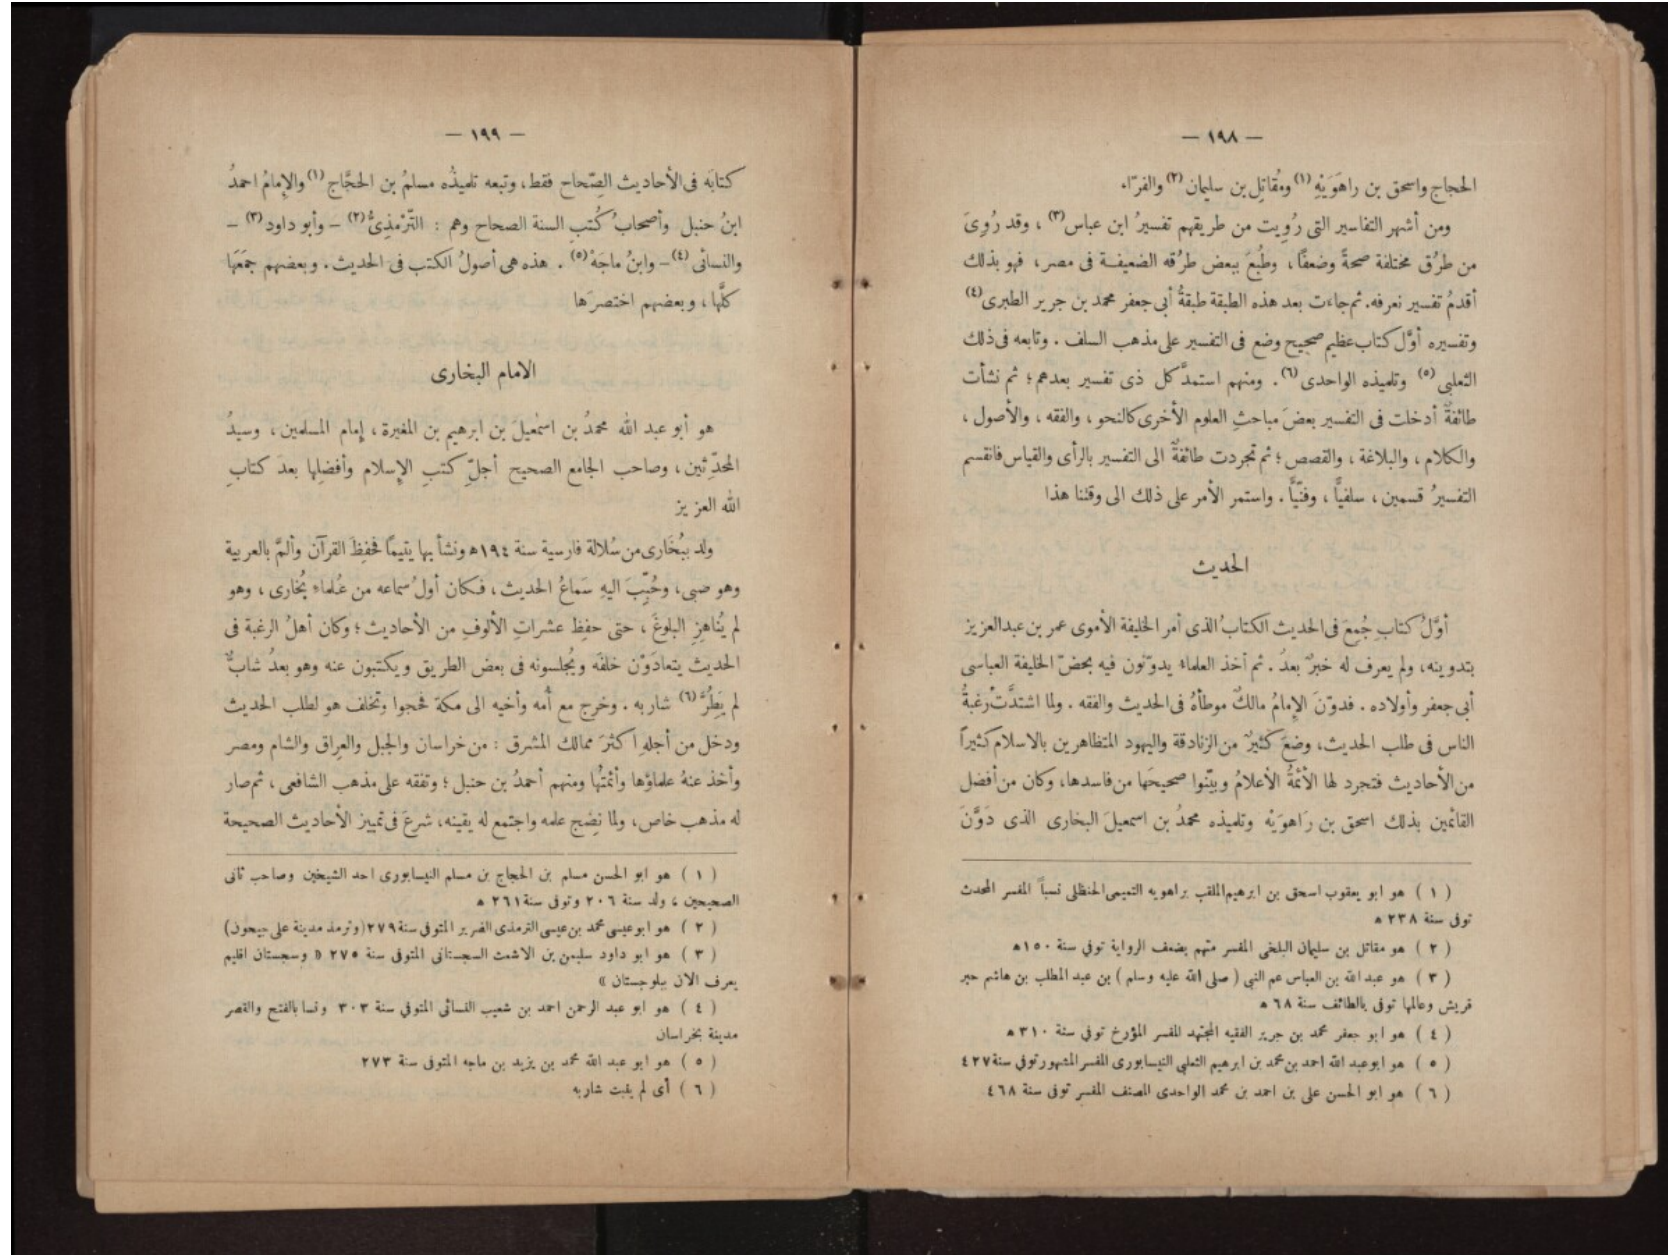 — ١٩٨ —
الحجاج واسحق بن راهَوَيْهِ (١) ومُقاتِل بن سليمان (٢) والفرّاء
ومن أشهر التفاسير التى رُوِيت من طريقهم تفسيرُ ابن عباس (٣) ، وقد رُوِىَ
من طرُق مختلفة صحةً وضعفًا ، وطُبعَ ببعض طرُقه الضعيفة فى مصر ، فهو بذلك
أقدمُ تفسير نعرفه. ثم جاءت بعد هذه الطبقة طبقةُ أبى جعفر محمد بن جرير الطبرى (٤)
وتفسيره أوَّل كتاب عظيم صحيح وضع فى التفسير على مذهب السلف . وتابعه فى ذلك
الثعلبى (٥) وتلميذه الواحدى (٦). ومنهم استمدَّ كل ذى تفسير بعدهم ؛ ثم نشأت
طائفةٌ أدخلت فى التفسير بعضَ مباحثِ العلوم الأخرى كالنحو ، والفقه ، والأصول ،
والكلام ، والبلاغة ، والقصص ؛ ثم تجردت طائفةٌ الى التفسير بالرأى والقياس فانقسم
التفسيرُ قسمين ، سلفيًّا ، وفنّيًّا . واستمر الأمر على ذلك الى وقتنا هذا
الحديث
أوَّلُ كتابٍ جُمعَ فى الحديث الكتابُ الذى أمر الخليفة الأموى عمر بن عبد العزيز
بتدوينه، ولم يعرف له خبرٌ بعدُ . ثم أخذ العلماء يدوّنون فيه بحضّ الخليفة العباسى
أبى جعفر وأولاده . فدوّنَ الإِمامُ مالكٌ موطأهُ فى الحديث والفقه . ولما اشتدَّتْ رغبةُ
الناس فى طلب الحديث، وضعَ كثيرٌ من الزنادقة واليهود المتظاهرين بالاسلام كثيراً
من الأحاديث فتجرد لها الأئمةُ الأعلامُ وبيّنوا صحيحَها من فاسدها، وكان من أفضل
القائمين بذلك اسحق بن رَاهوَيْه وتلميذه محمدُ بن اسمعيلَ البخارى الذى دَوَّنَ
( ١ ) هو ابو يعقوب اسحق بن ابرهيم الملقب براهويه التميمى الحنظلى نسباً المفسر المحدث
توفى سنة ٢٣٨ ه
( ٢ ) هو مقاتل بن سليمان البلخى المفسر متهم بضعف الرواية توفي سنة ١٥٠ه
( ٣ ) هو عبد الله بن العباس عم النبي ( صلى الله عليه وسلم ) بن عبد المطلب بن هاشم حبر
قريش وعالمها توفى بالطائف سنة ٦٨ ه
( ٤ ) هو ابو جعفر محمد بن جرير الفقيه المجتهد المفسر المؤرخ توفي سنة ٣١٠ ه
( ٥ ) هو ابو عبد الله احمد بن محمد بن ابرهيم الثعلبي النيسابورى المفسر المشهور توفي سنة ٤٢٧
( ٦ ) هو ابو الحسن على بن احمد بن محمد الواحدى المصنف المفسر توفى سنة ٤٦٨
— ١٩٩ —
كتابَه فى الأحاديث الصِّحاح فقط ، وتبعه تلميذُه مسلمُ بن الحجَّاج (١) والإِمامُ احمدُ
ابنُ حنبل وأصحابُ كُتبِ السنة الصحاح وهم : التِّرْمذِىُّ (٢) – وأبو داود (٣) –
والنسائى (٤) – وابنُ ماجَهْ (٥) . هذه هى أصولُ الكتب فى الحديث . وبعضهم جمَعَهَا
كلَّها ، وبعضهم اختصرَها
الامام البخارى
هو أبو عبد الله محمدُ بن اسمٰعيلَ بن ابرهيم بن المغيرة ، إمام المسلمين ، وسيدُ
المحدِّثين ، وصاحب الجامع الصحيح أجلِّ كتبِ الإِسلام وأفضلِها بعدَ كتابِ
الله العزيز
ولد ببُخَارى من سُلالة فارسية سنة ١٩٤ ه ونشأ بها يتيمًا فحفِظَ القرآن وألمَّ بالعربية
وهو صبى، وحُبِّبَ اليهِ سَماعُ الحديث ، فكان أولُ سماعه من عُلماء بُخارى ، وهو
لم يُناهِزِ البلوغَ ، حتى حفِظ عشراتِ الألوفِ من الأحاديث ؛ وكان أهلُ الرغبة فى
الحديث يتعادَوْن خلفَه ويُجلسونه فى بعض الطريق ويكتبون عنه وهو بعدُ شابٌّ
لم يَطِرَّ (٦) شاربه . وخرج مع أُمه وأخيه الى مكة فحجوا وتخلف هو لطلب الحديث
ودخل من أجلهِ أكثرَ ممالك المشرق : من خراسان والجبل والعِراق والشام ومصر
وأخذ عنهُ علماؤها وأئمتُها ومنهم أحمدُ بن حنبل ؛ وتفقه على مذهب الشافعى ، ثم صار
له مذهب خاص، ولما نضِج علمه واجتمع له يقينه، شرعَ فى تمييز الأحاديث الصحيحة
( ١ ) هو ابو الحسن مسلم بن الحجاج بن مسلم النيسابورى احد الشيخين وصاحب ثانى
الصحيحين ، ولد سنة ٢٠٦ وتوفى سنة ٢٦١ ه
( ٢ ) هو ابو عيسى محمد بن عيسى الترمذى الضرير المتوفى سنة ٢٧٩ (وترمذ مدينة على جيحون)
( ٣ ) هو ابو داود سليمن بن الاشعث السجستانى المتوفى سنة ٢٧٥ « وسجستان اقليم
يعرف الآن ببلوجستان »
( ٤ ) هو ابو عبد الرحمن احمد بن شعيب النسائى المتوفي سنة ٣٠٣ ونسا بالفتح والقصر
مدينة بخراسان
( ٥ ) هو ابو عبد الله محمد بن يزيد بن ماجه المتوفى سنة ٢٧٣
( ٦ ) أى لم ينبت شاربه